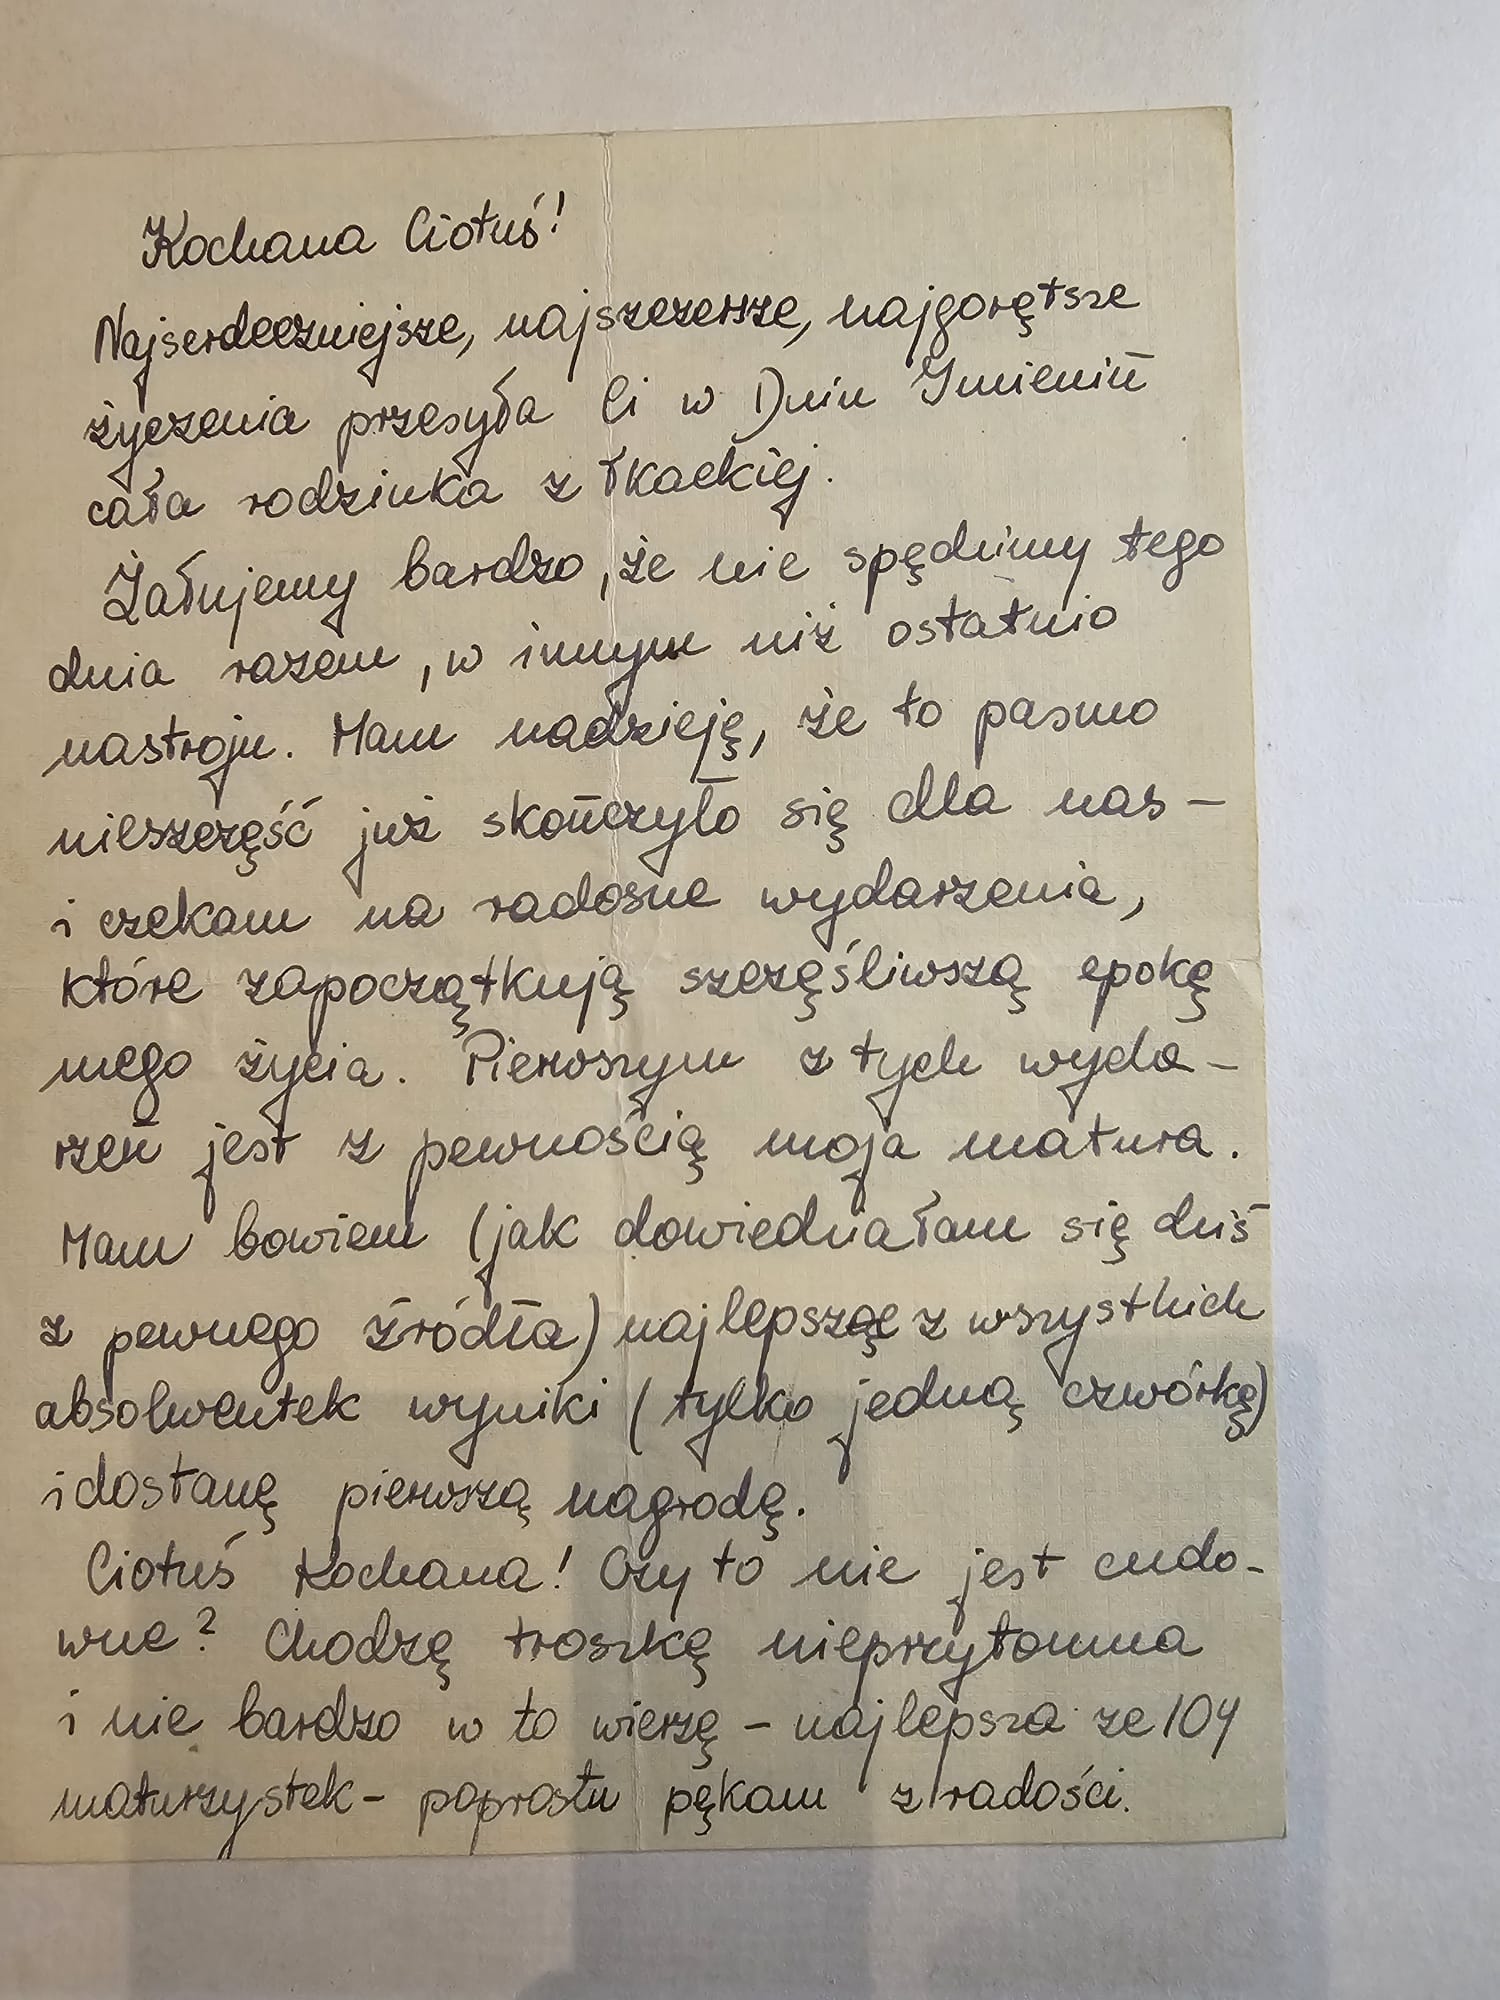 Kochana Ciotuś!
Najserdeczniejsze, najszczersze, najgorętsze
życzenia przesyła Ci w Dniu Imienin
cała rodzinka z Tkackiej.
Żałujemy bardzo, że nie spędzimy tego
dnia razem, w innym niż ostatnio
nastroju. Mam nadzieję, że to pasmo
nieszczęść już skończyło się dla nas –
i czekam na radosne wydarzenia,
które zapoczątkują szczęśliwszą epokę
mego życia. Pierwszym z tych wyda-
rzeń jest z pewnością moja matura.
Mam bowiem (jak dowiedziałam się dziś
z pewnego źródła) najlepsze z wszystkich
absolwentek wyniki (tylko jedną czwórkę)
i dostanę pierwszą nagrodę.
Ciotuś Kochana! Czy to nie jest cudo-
wne? Chodzę troszkę nieprzytomna
i nie bardzo w to wierzę – najlepsza ze 104
maturzystek – poprostu pękam z radości.